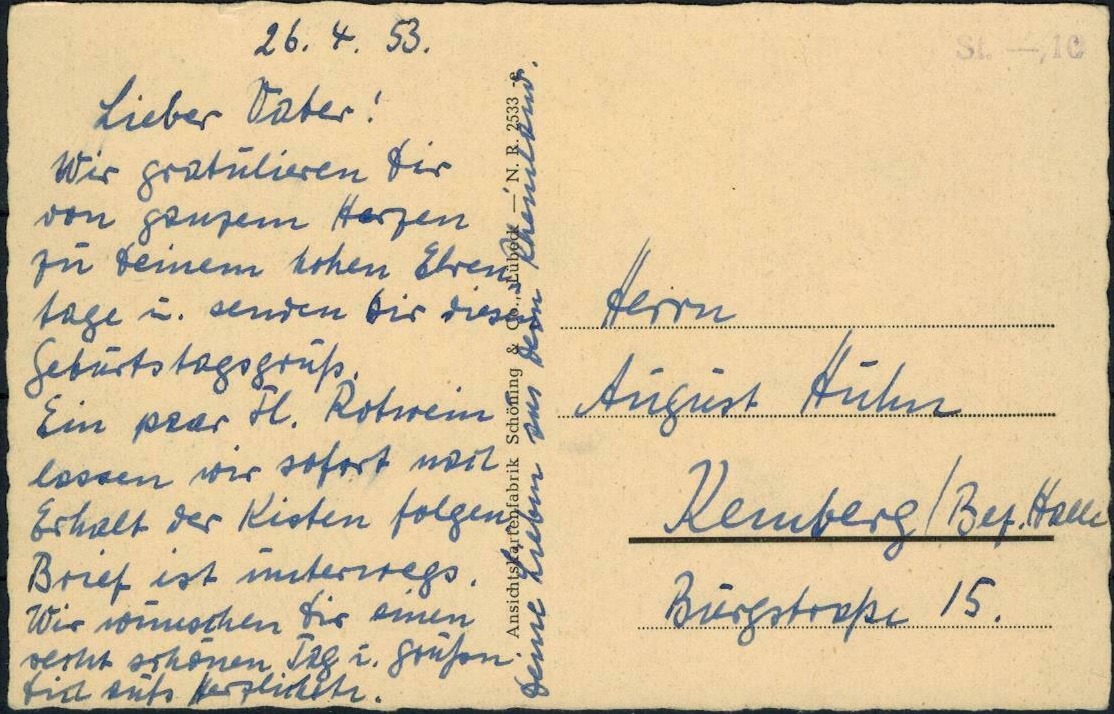 26. 4. 53.
Lieber Vater!
Wir gratulieren Dir
von ganzem Herzen
zu Deinem hohen Ehren
tage u. senden Dir diesen
Geburtstagsgruß.
Ein paar Fl. Rotwein
lassen wir sofort nach
Erhalt der Kisten folgen,
Brief ist unterwegs.
Wir wünschen Dir einen
recht schönen Tag u. grüßen
Dich aufs Herzlichste.
Deine Lieben aus dem Rheinland.
Ansichtskartenfabrik Schöning & Co., Lübeck — N. R. 2533
St. —,10
Herrn
August Huhn
Kemberg/Bez. Halle
Burgstraße 15.